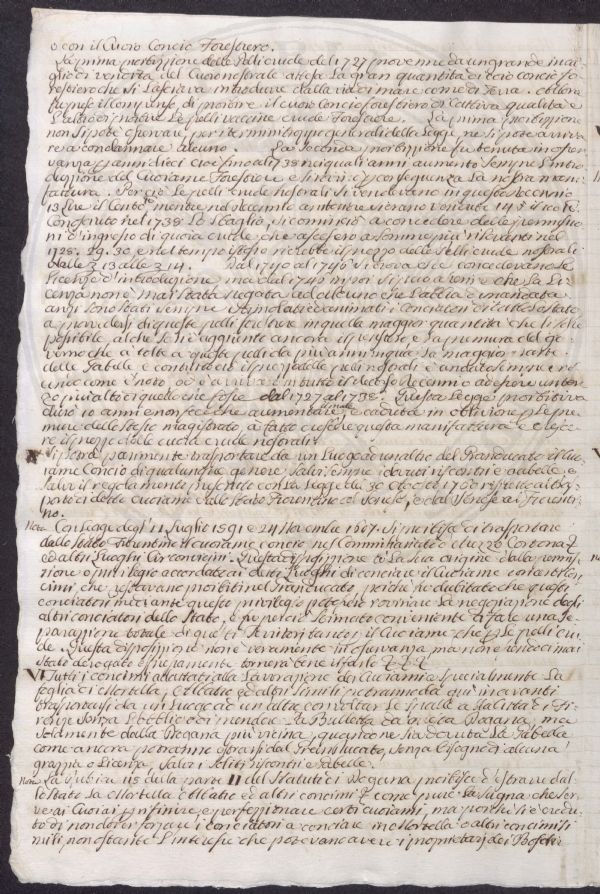 o con il Cuoio Concio Forestiero.
La prima proibizione delle Pelli crude del 1727 provenne da un grande inca-
glio di vendita del Cuoio nostrale attesa la gran quantità di cuoio concio fo-
restiero che si lasciava introdurre dalla via di mare come di Terra.
prese il compenso, di proibire il cuoio concio forestiero di cattiva qualità e
l'altro di proibire le pelli vaccine crude forestiere. La prima proibizione
non si potè osservare, per i termini troppo generali della Legge, ne si potè arriva-
re a condannare alcuno. La seconda proibizione fu tenuta in osser-
vanza per anni dieci cioè fino al 1738 nei quali anni aumentò sempre l'intro-
duzione del Cuoiame Forestiero e per conseguenza la nostra mani-
fattura. Perciò le pelli crude nostrali si vendevano in questo decennio
13 lire il Cento mentre nel decennio antecedente erano vendute 14
Conosciuto nel 1738 Lo sbaglio, si cominciò a concedere delle permissio-
ni d'ingresso di quoia crude che ascesero a somme più rilevanti nel
1728. 29. 30 e nel tempo istesso il prezzo delle Pelli crude nostrali
dalle £ 13 alle £ 14. Dal 1740 al 1746 si concedevano le
licenze d'introduzione, ma dal 1746 in poi che la Li-
cenza non è mai stata negata ad alcuno che l'abbia domandata
anzi sono stati sempre stimolati ed animati i Conciatori di tutto lo stato
a provvedersi di queste pelli forestiere in quella maggior quantità che li fosse
possibile, al che si è aggiunto ancora la premura del go-
verno che à tolta a queste pelli da più anni in qua la maggior parte
delle Gabelle e contuttociò il prezzo delle pelli nostrali è andato sempre cre-
scendo come è noto, ed è arrivato in tutto il decennio ad essere un ter-
zo più alto di quello che fosse dal 1727 al 1738. Questa Legge proibitiva
durò 10 anni e non fece che aumentare, e caduta in oblivione per le pre-
mure dello stesso magistrato, à fatto crescere questa manifattura e cresce-
re il prezzo delle cuoia crude nostrali.
Si potrà parimente trasportare da un Luogo ad un altro del Granducato il Cuo-
iame Concio di qualunque genere, salvi i soliti riscontri e Gabelle, e
salvo il regolamento prescritto con la Legge del 30 Ottobre 1750 rispetto ai tras-
porti di detto Cuoiame dallo stato Fiorentino al Senese, e dal Senese al Fiorenti-
no.
Nota Con Legge degl' 11 Luglio 1591 e 24 Novembre 1667 si proibisce di trasportare
dallo stato Fiorentino il cuoiame concio nel Commissariato d'Arezzo Cortona &
ed altri Luoghi Circonvicini. Questa disposizione à la sua origine dalla permis-
sione o privilegio accordato ai detti Luoghi di conciare il Cuoiame con altri con-
cimi che restavano proibiti nel Granducato, perchè fu dubitato che questi
conciatori mediante questo privilegio potessero rovinare la negoziazione degli
altri conciatori dello stato, e perciò stimato conveniente di fare una se-
parazione totale di questi territori tanto per il Cuoiame che per le pelli cru-
de. Questa disposizione non è veramente in osservanza ma non essendo mai
stata derogata espressamente tornerà bene il farlo &. &. &.
VI Tutti i concimi adattati alla Lavorazione dei cuoiami e specialmente La
foglia di Mortella, e Albatro ed altri simili potranno da qui in avanti
trasportarsi da un Luogo ad un altro
senza l'obbligo di prendere La Bulletta da Dogana, ma
solamente dalla Dogana più vicina, quando ne sia dovuta La Gabella
come ancora potranno estrarsi dal Granducato, senza bisogno di alcuna
grazia o Licenza, salvi i soliti riscontri e Gabelle.
Nota La rubrica 115 della parte II del Statuto di Dogana proibisce d'estrarre dal-
lo stato la Mortella e Albatro ed altri concimi & come pure La Sugna che ser-
ve ai Cuoiai per rifinire e perfezionare certi cuoiami, ma poichè si è credu-
to di non dover forzare i conciatori a conciare in Mortella o altri concimi si-
mili nonostante l'interesse che potevano avere i proprietari dei Boschi